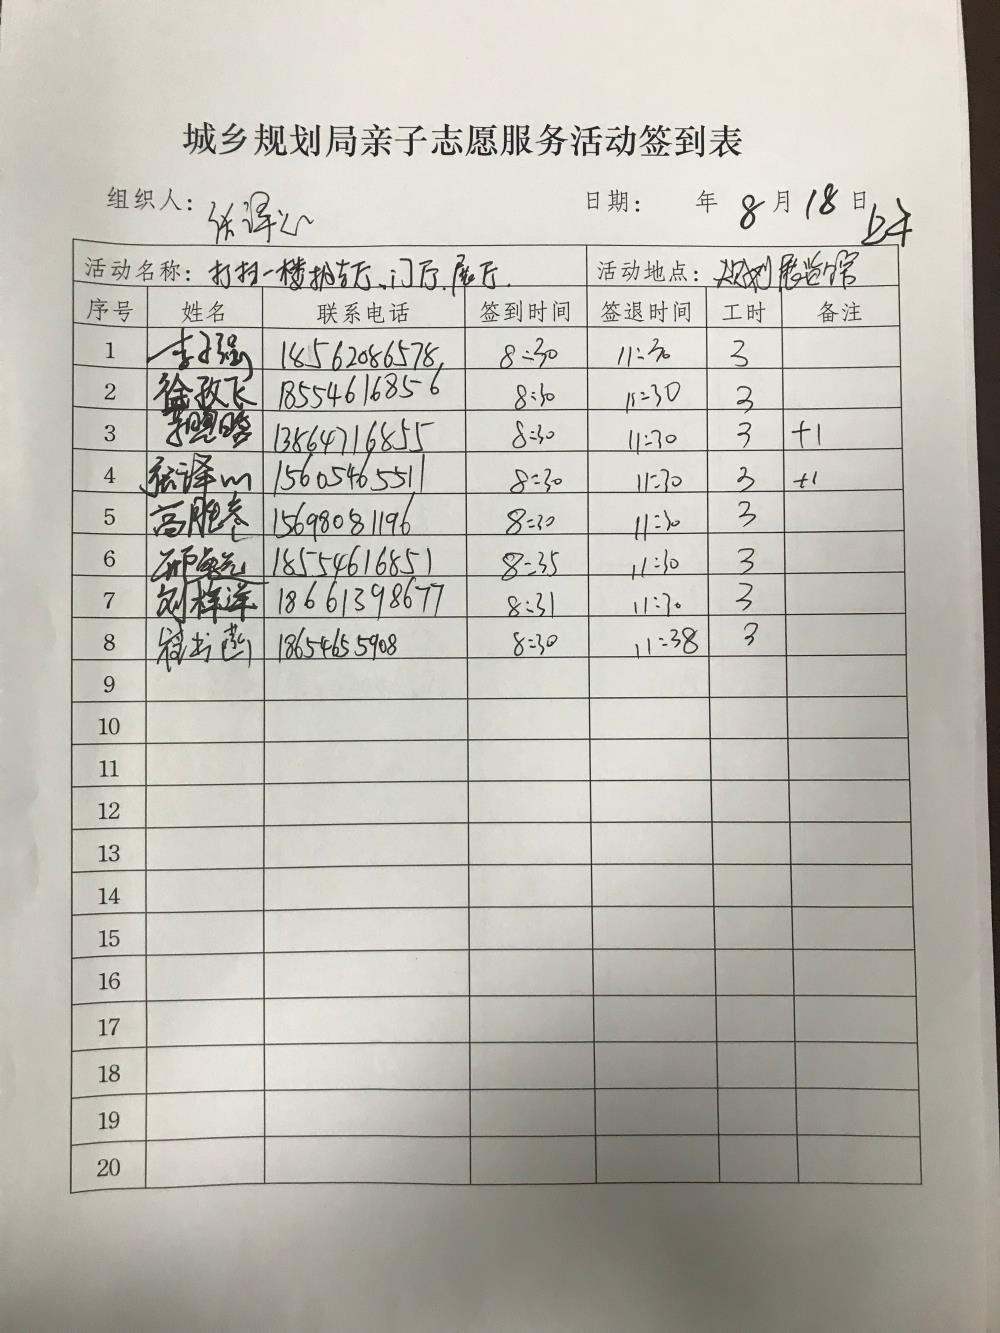 城乡规划局亲子志愿服务活动签到表
组织人: 张译心 日期: 年 8 月 18 日 上午
活动名称: 打扫一楼 门厅、展厅. 活动地点: 规划展览馆
序号 姓名 联系电话 签到时间 签退时间 工时 备注
1 李子强 18562086578 8:30 11:30 3
2 徐政飞 18554616856 8:30 11:30 3
3 13864716855 8:30 11:30 3 +1
4 张译心 15605465511 8:30 11:30 3 +1
5 高胜 15698081196 8:30 11:30 3
6 18554616851 8:35 11:30 3
7 刘梓洋 18661398677 8:31 11:30 3
8 崔书菡 18654655908 8:30 11:38 3
9
10
11
12
13
14
15
16
17
18
19
20